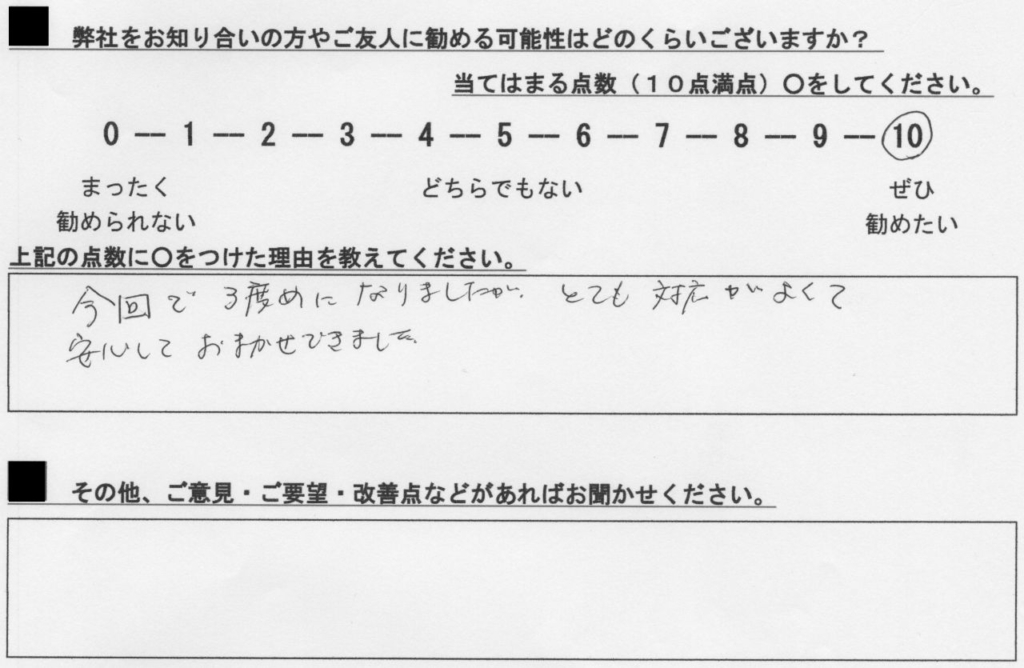 弊社をお知り合いの方やご友人に勧める可能性はどのくらいございますか？
当てはまる点数（１０点満点）〇をしてください。
0 ― 1 ― 2 ― 3 ― 4 ― 5 ― 6 ― 7 ― 8 ― 9 ― 10
まったく どちらでもない ぜひ
勧められない 勧めたい
上記の点数に〇をつけた理由を教えてください。
今回で 3度めに なりましたが、とても 対応 がよくて
安心して おまかせできました。
その他、ご意見・ご要望・改善点などがあればお聞かせください。